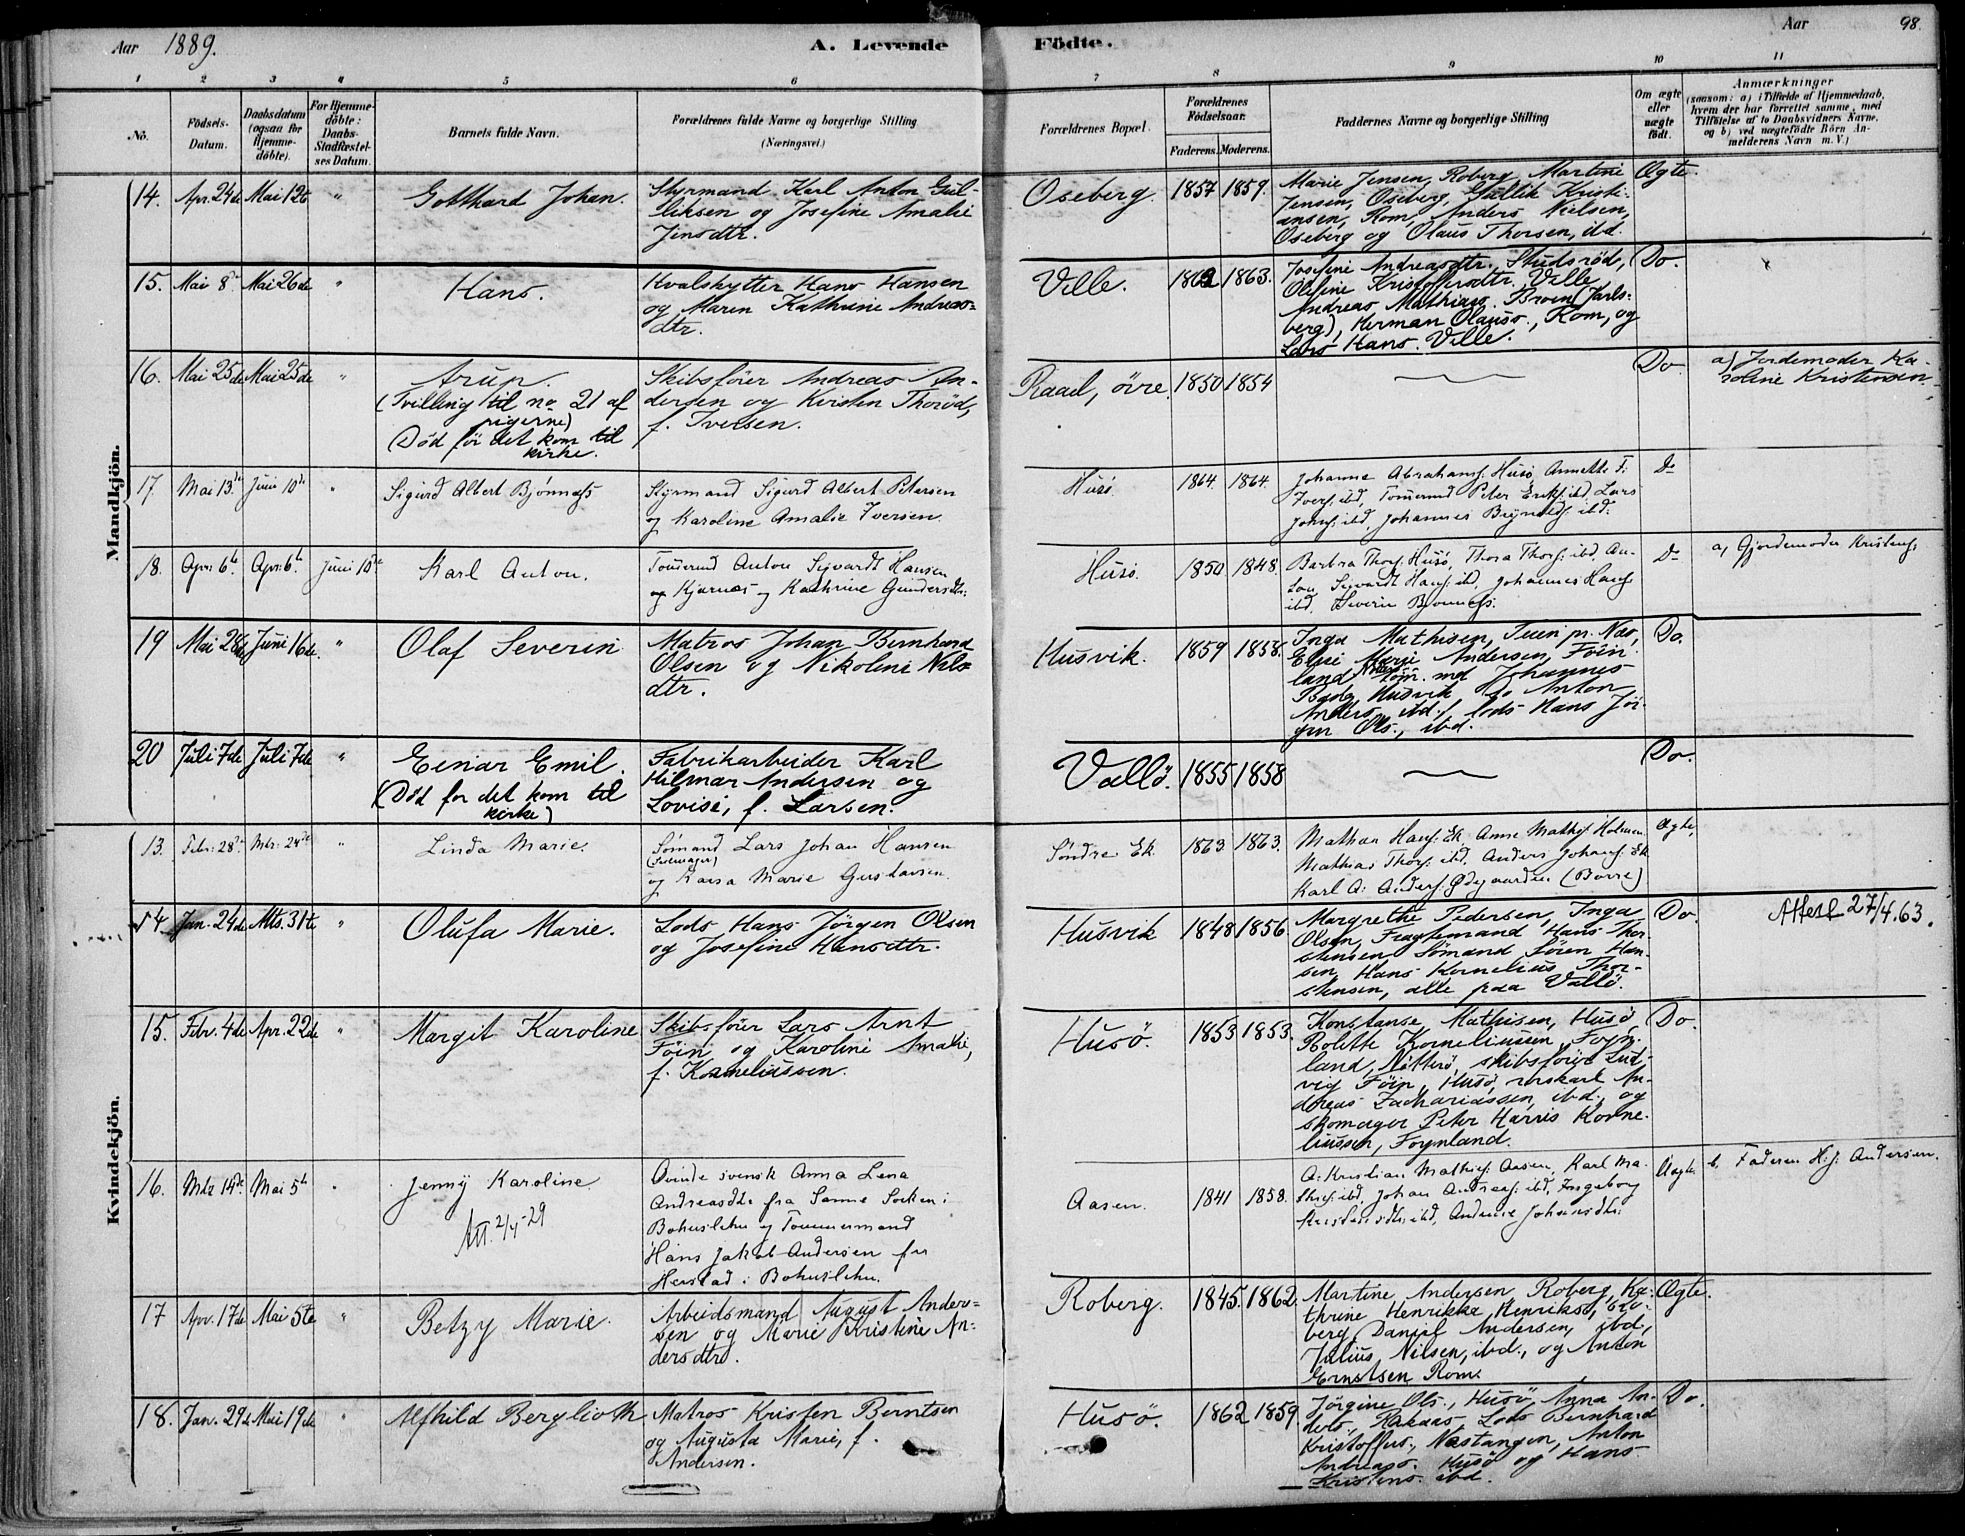 Aar 1889.
A. Levende Födte.
Aar 98.
1 2 3 4 5 6 7 8 9 10 11
No.
Födsels-Datum.
Daabsdatum (ogsaa for Hjemme-döbte).
For Hjemme-döbte: Daabs-Stadfæstel-ses Datum.
Barnets fulde Navn.
Forældrenes fulde Navne og borgerlige Stilling (Næringsvei.)
Forældrenes Bopæl.
Forældrenes Födselsaar.
Faderens. Moderens.
Faddernes Navne og borgerlige Stilling
Om ægte eller uægte födt.
Anmærkninger
(saasom: a) i Tilfælde af Hjemmedaab,
hvem der har forrettet samme, med
Tilföielse af to Daabsvidners Navne,
og b) ved uægtefödte Börn An-
melderens Navn m. V.)
Mandkjön.
14. Apr. 24de Mai 12te "
Gotthard Johan.
Styrmand Karl Anton Gul-
liksen og Josefine Amalie
Jensdtr.
Oseberg. 1857 1859.
Marie Jensen, Roberg, Martine
Jensen, Oseberg, Gullik Kristi-
ansen, Rom, Anders Nielsen,
Oseberg og Olaus Thorsen, ibd.
Ægte
15. Mai 8de Mai 26de "
Hans.
Hvalskytter Hans Hansen
og Maren Kathrine Andreas-
dtr.
Velle. 1862 1863.
Josefine Andreasdtr. Studsröd,
Olefine Kristoffersdtr. Velle,
Andreas Mathias. Broen (Jarls-
berg), Herman Olauss., Rom, og
Lars Hans. Velle.
Do.
16. Mai 25de Mai 25de "
Arup.
(Tvilling til no 21 af
pigerne)
Död för det kom til
kirke.
Skibsförer Andreas An-
dersen og Kirsten Thoröd,
f. Iversen.
Raael, övre. 1850 1854
Do.
a) Jordemoder Ka-
roline Kristensen
17. Mai 13de Juni 10de "
Sigurd Albert Bjønness
Styrmand Sigurd Albert Petersen
og Karoline Amalie Iversen.
Husö. 1864. 1864.
Johanne Abrahams. Husö, Annette F.
Ivers. ibd, Tömmermd Peter Eriks. ibd. Lars
Johs. ibd, Johannes Brynilds. ibd.
Do
18. Apr. 6te Apr. 6te Juni 10de
Karl Anton.
Tömmermd Anton Sigvardt Hansen
og Kjærnes og Kathrine Gundersdtr.
Husö. 1850 1848.
Barbra Thors. Husö, Thora Thors. ibd. An-
ton Sigvardt Hans. ibd, Johannes Hans.
ibd. Severin Bjønness.
Do
a) Gjordemoder Kristens.
19 Mai 28de Juni 16de. "
Olaf Severin
Matros Johan Bernhard
Olsen og Nikoline Nils-
dtr.
Husvik. 1859 1858.
Inga Mathisen, Teien pr. Næs,
Elise Marie Andersen, Föin-
land, Töm. md Johannes
Husvik Do Anton
Anders. ibd., lods Hans Jör-
gen Ols., ibd.
Do.
20 Juli 7de Juli 7de "
Einar Emil.
(Död for det kom til
kirke)
Fabrikarbeider Karl
Hilmar Andersen og
Lovise, f. Larsen.
Vallö. 1855 1858
Do.
Kvindekjön.
13. Febr. 28de Mts. 24de "
Linda Marie.
Sömand Lars Johan Hansen
og Kaisa Marie Gustavsen.
Söndre Ek. 1863 1863.
Mathea Hans. Ek. Anne Mathis. Holmen
Mathias Thors. ibd. Anders Johans. Ek
Karl A. Anders. Ödegaarden (Borre)
Ægte,
14. Jan. 24de Mts. 31te "
Olufa Marie.
Lods Hans Jörgen Olsen
og Josefine Hansdtr.
Husvik 1848 1856.
Margrethe Pedersen, Inga
Olsen, Fragtemand Hans Thor-
stensen, Sömand Sören Han-
sen, Hans Kornelius Thor-
stensen, alle paa Vallö.
Do.
Attest 27/4.63.
15. Febr. 4de Apr. 22de "
Margit Karoline
Skibsförer Lars Arnt
Föin og Karoline Amalie,
f. Korneliussen.
Husö. 1853 1853.
Konstanse Mathisen, Husö,
Rolette Korneliussen, Foyn-
land, Nötterö, skibsförer Lud-
vig Föin, Husö, ungkarl An-
dreas Zachariassen, ibd., og
skomager Peter Harris Korne-
liussen, Foynland.
Do.
16. Mts 14de Mai 5te "
Jenny Karoline.
Att. 2/4-29
Qvinde svensk Anna Lena
Andreasdtr fra Sanne Socken i
Bohuslehn og Tömmermand
Hans Jakob Andersen fra
Herstad i Bohuslehn.
Aasen. 1841 1858.
A. Kristian Mathis. Aasen, Karl Ma-
this. ibd, Johan Andreas. ibd, Ingeborg
Kristensdtr. ibd, Andrine Johansdtr.
Uægte
b. Faderen H. J. Andersen.
17 Apr. 17de Mai 5te "
Betzy Marie.
Arbeidsmand August Ander-
sen og Marie Kristine An-
dersdtr.
Roberg. 1845. 1862.
Martine Andersen Roberg, Ka-
thrine Henrikke Henriks., Ro-
berg, Daniel Andersen, ibd,
Julius Nilsen, ibd., og Anton
Ernstsen Rom.
Ægte.
18. Jan. 29de Mai 19de "
Alfhild Berglioth
Matros Kristen Berntsen
og Augusta Marie, f.
Andersen.
Husö. 1862 1859.
Jörgine Ols., Husö, Anna An-
ders., Rakaas, Lods Bernhard
Kristoffers., Nestangen, Anton
Andreas. Husö og Hans
Kristens. ibd.
Do.